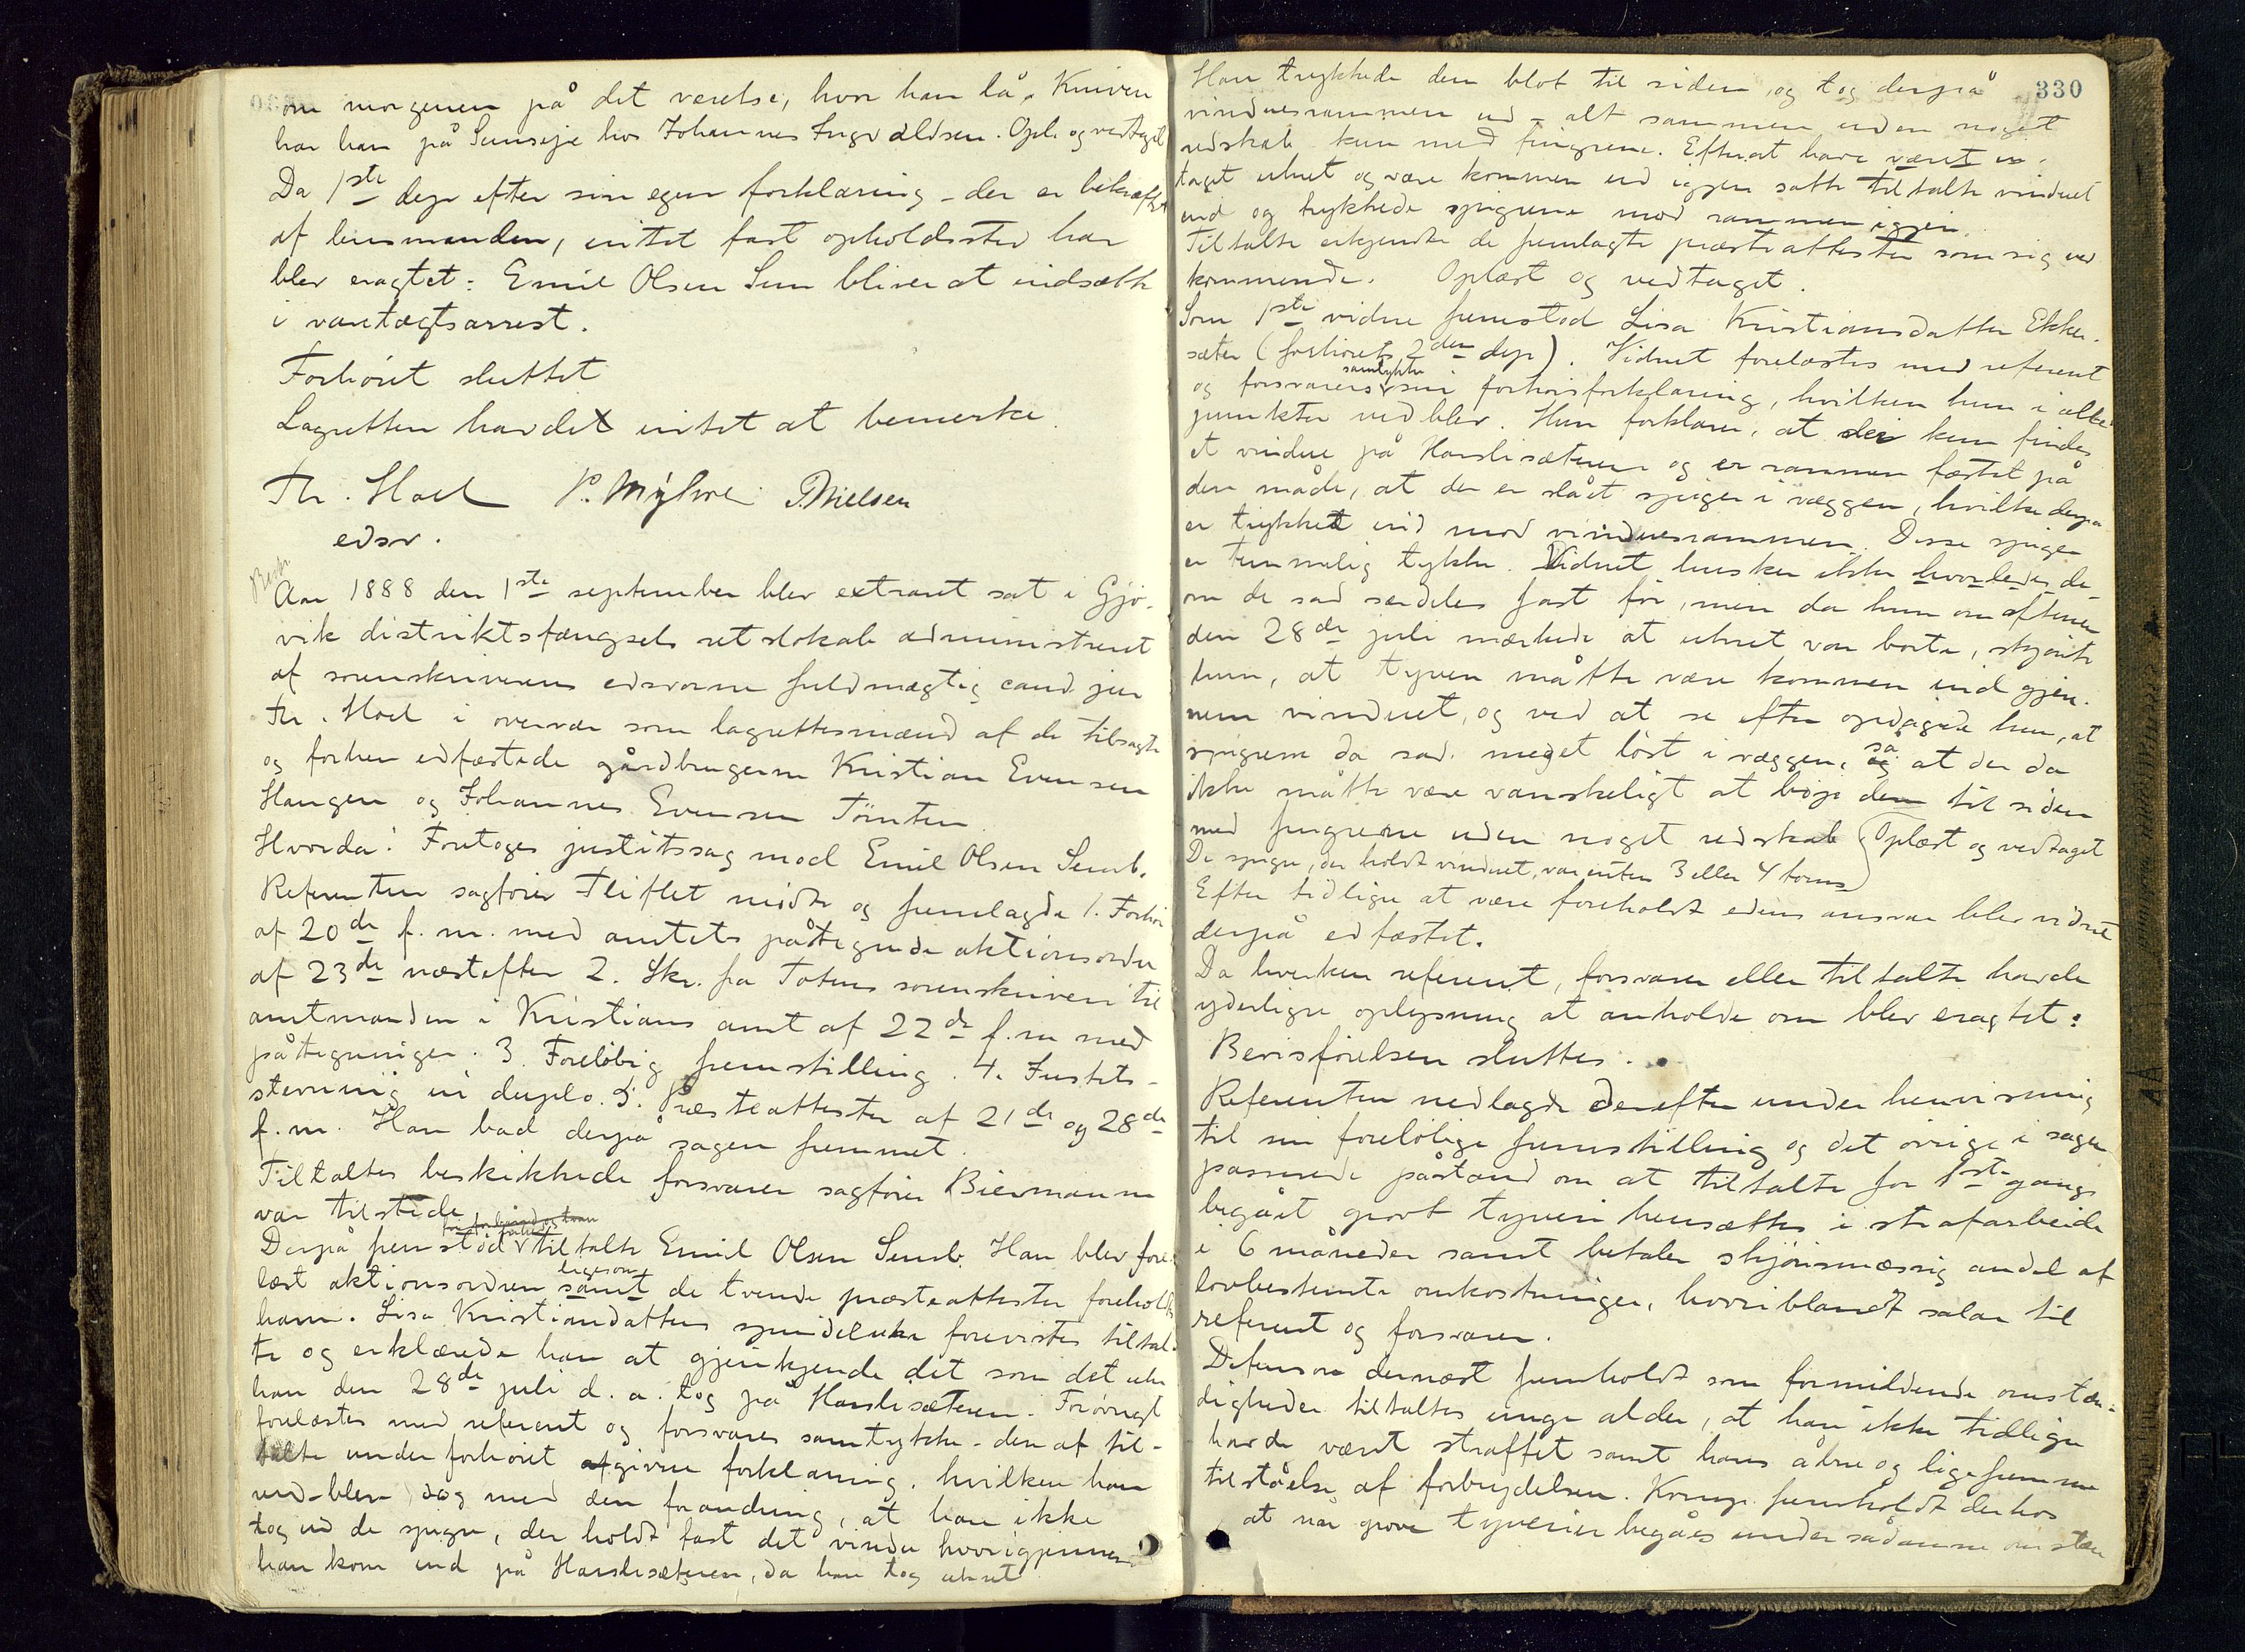 om morgenen på det værelse, hvor han lå. Kniven
har han på Sumseje hos Johannes Ingvaldsen. Opl. og vedtaget
Da 1ste dep efter sin egen forklaring - der er bekræftet
af lensmanden, intet fast opholdssted har
blev eragtet: Emil Olsen Sem bliver at indsætte
i varetægtsarrest.
Forhöret sluttet
Lagretten havde intet at bemerke.
Th. Hoel P. Myhre P. Nielsen
edsv.
Aar 1888 den 1ste september blev extraret sat i Gjö-
vik distriktsfængsels retslokale administreret
af sorenskriverens edsvorne fuldmægtig cand jur
Th. Hoel i overvær som lagrettesmænd af de tilsagte
og forhen edfæstede gårdbrugerne Kristian Evensen
Haugen og Johannes Evensen Tömten
Hvorda: Foretoges justitssag mod Emil Olsen Semb.
Referenten sagförer Fliflet mödte og fremlagde 1. Forhör
af 20de f.m. med amtets påtegnede aktionsordre
af 23de næstefter 2. Skr. fra Totens sorenskriveri til
amtmanden i Kristians amt af 22de f.m med
påtegninger. 3. Forelöbig fremstilling. 4. Justits-
stevning in duplo. 5. Præsteattester af 21de og 28de
f.m. Han bad derpå sagen fremmet.
Tiltaltes beskikkede forsvarer sagförer Biermann
var tilstede
Derpå fremstod tiltalte Emil Olsen Semb. Han blev fore-
ligesom
læst aktionsordren samt de tvende præsteattester foreholdt
ham. Lisa Kristiansdatters spindeluhr forevistes tiltal-
te og erklærede han at gjenkjende det som det uhr
han den 28de juli d. a. tog på Harslisæteren. Forövrigt
forelæstes med referent og forsvarers samtykke - den af til-
talte under forhöret afgivne forklaring, hvilken han
ved-blev dog med den forandring, at han ikke
tog ud de spigre, der holdt fast det vindu hvorigjennem
han kom ind på Harslisæteren, da han tog uhret
330
Han trykkede dem blot til siden og tog derpå
vinduesrammen ud - alt sammen uden noget
redskab kun med fingrene. Efterat have været in-
taget uhret og være kommen ud igjen satte tiltalte vinduet
ind og trykkede spigrene mod rammen igjen.
Tiltalte erkjendte de fremlagte præsteattester som sig ved
kommende. Oplæst og vedtaget.
Som 1ste vidne fremstod Lisa Kristiansdatter Ekke-
sæter (forhörets 2den dep). Vidnet forelæstes med referent
samtykke
og forsvarers sin forhörsforklaring, hvilken hun i alle
punkter vedblev. Hun forklarer, at der kun findes
et vindue på Harslisæteren og er rammen fæstet på
den måde, at der er slået spiger i væggen, hvilke derpå
er trykket ind mod vinduesrammen. Disse spiger
er temmelig tykke. Vidnet husker ikke hvorledes de
om de sad særdeles fast för, men da hun om aftenen
den 28de juli mærkede at uhret var borte, skjönte
hun, at tyven måtte være kommen ind gjen-
nem vinduet, og ved at se efter opdagede hun, at
så
spigrene da sad meget löst i væggen, og at der da
ikke måtte være vanskeligt at böje dem til siden
med fingrene uden noget redskab (Oplæst og vedtaget
De spigre, der holdt vinduet, var enten 3 eller 4 toms)
Efter tidligere at være foreholdt edens ansvar blev vidnet
derpå edfæstet.
Da hverken referent, forsvarer eller tiltalte havde
yderligere oplysning at anholde om blev eragtet:
Bevisförelsen sluttes.
Referenten nedlagde derefter under henvisning
til sin forelöbige fremstilling og det övrige i sagen
passerede påstand om at tiltalte for 1ste gangs
begået grovt tyveri hensættes i strafarbeide
i 6 måneder samt betaler skjönsmæssig andel af
lovbestemte omkostninger, hvoriblandt salær til
referent og forsvarer.
Defensor dernæst fremholdt som formildende omstæn-
digheder tiltaltes unge alder, at han ikke tidligere
havde været straffet samt hans åbne og ligefremme
tilståelse af forbrydelsen. Komp. fremholdt derhos
, at når grove tyverier begåes under sådanne omstæn